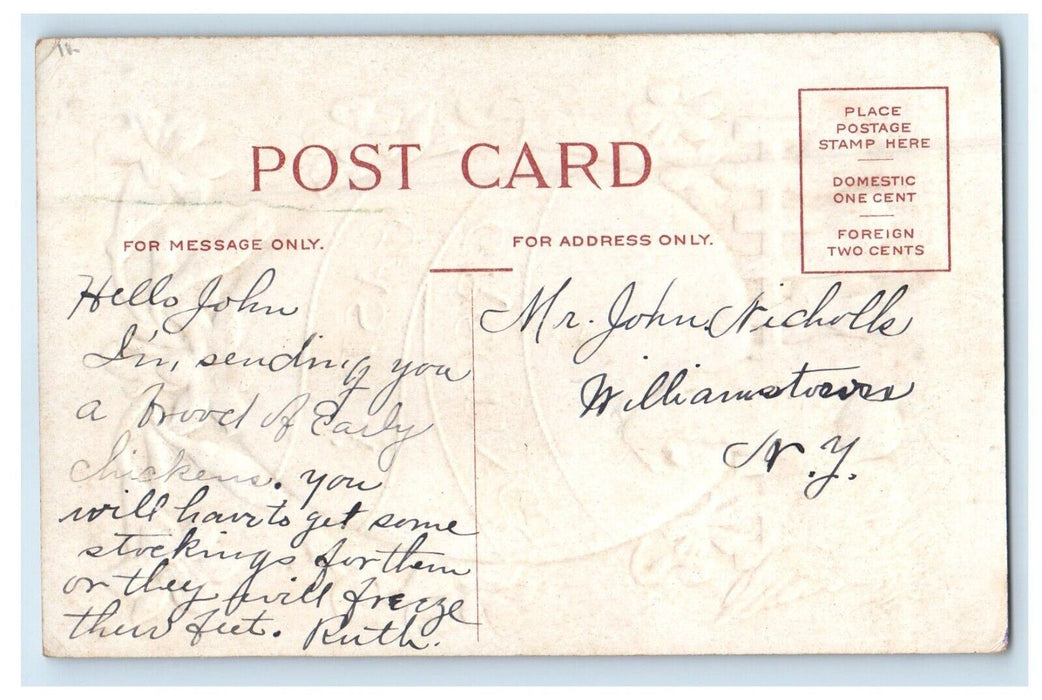 POST CARD
PLACE
POSTAGE
STAMP HERE
DOMESTIC
ONE CENT
FOREIGN
TWO CENTS
FOR MESSAGE ONLY.
FOR ADDRESS ONLY.
Hello John
I'm, sending you
a brood of Early
Chickens. you
will have to get some
stockings for them
or they will freeze
their feet. Ruth.
Mr. John Nicholls
Williamstown
N.Y.